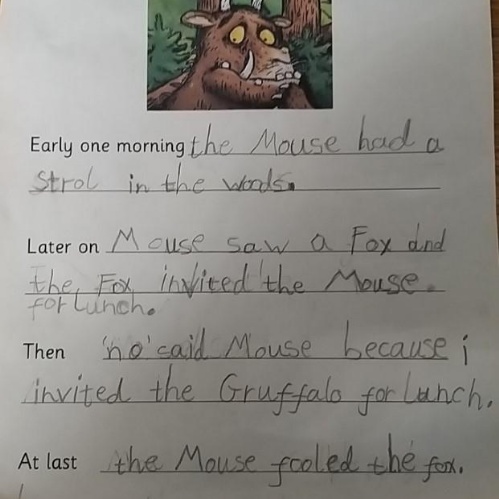 Early one morning the Mouse had a
Strol in the woods.
Later on Mouse saw a Fox and
the Fox invited the Mouse.
for Lunch.
Then 'no' said Mouse because i
invited the Gruffalo for Lunch.
At last the Mouse fooled the fox.